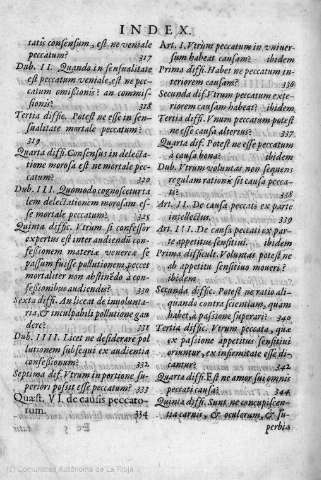 INDEX.
tatis consensum, est ne veniale
peccatum? 317
Dub. II. Quando in sensualitate
est peccatum veniale, est ne pec-
catum omissionis? an commis-
sionis? 318
Tertia diffic. Potest ne esse in sen-
sualitate mortale peccatum?
319
Quarta diffi. Consensus in delecta-
tione morosa est ne mortale pec-
catum? 320
Dub. III. Quomodo cognoscat
tem delectationem morosam es-
se mortale peccatum? 325
Quinta diffic. Vtrum si confessor
expertus est inter audiendū con-
fessionem materiæ venereæ se
passum fuisse pollutionem, peccet
mortaliter non abstinēdo à con-
fessionibus audiendu? 330
Sexta diffi. An liceat de inuolunta-
ria, & inculpabili pollutione gau
dere? 331
Dub. IIII. Licet ne desiderare pol
lutionem subsequi ex audientia
confessionum? 332.
Septima dif. Vtrum in portione su-
periori possit esse peccatum? 333
Quæst. VI. de causis peccato-
rum. 334
Art. I. Vtrum peccatum in vniuer-
sum habeat causam? ibidem
Prima diffi. Habet ne peccatum in-
teriorem causam? 336
Secunda dif. Vtrum peccatum exte-
riorem causam habeat? ibidem
Tertia diffi. Vnum peccatum potest
ne esse causa alterius? 337.
Quarta dif. Potest ne esse peccatum
à causa bona? ibidem
Dub. Vtrum voluntas non sequens
regulam rationis sit causa pecca-
ti? 338
Art. II. De causa peccati ex parte
intellectus. 339
Art. III. De causa peccati ex par-
te appetitus sensitiui. ibidem
Prima difficult. Voluntas potest ne
ab appetitu sensitiuo moueri?
ibidem
Secunda diffic. Potest ne ratio ali-
quando contra scientiam, quam
habet, à passione superari? 340
Tertia diffic. Vtrum peccata, quæ
ex passione appetitus sensitiui
oriuntur, ex infirmitate esse di-
cantur? 342
Quarta diffi. Est ne amor sui omnis
peccati causa? 344.
Quinta diffi. Sunt ne concupiscen-
tia carnis, & oculorum, & su-
perbia
(C) Comunidad Autónoma de La Rioja